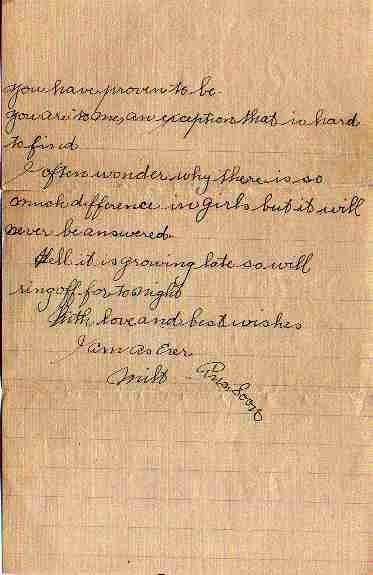 you have proven to be
you are to me, an exception that is hard
to find
I often wonder why there is so
much difference in girls but it will
never be answered.
Well it is growing late so will
ring off for tonight
With love and best wishes
I am as Ever
Milt